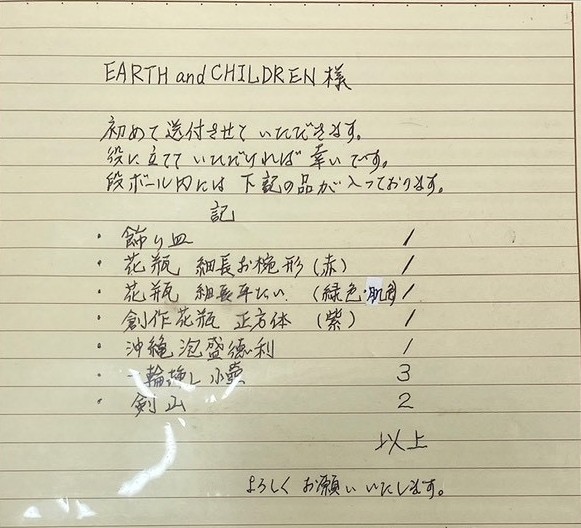 EARTH and CHILDREN 様
初めて送付させていただきます。
役に立てていただければ幸いです。
段ボール内には下記の品が入っております。
記
・飾り皿 1
・花瓶 細長お椀形(赤) 1
・花瓶 細長平たい (緑色・肌色) 1
・創作花瓶 正方体 (紫) 1
・沖縄泡盛徳利 1
・一輪挿し小壺 3
・剣山 2
以上
よろしくお願いいたします。